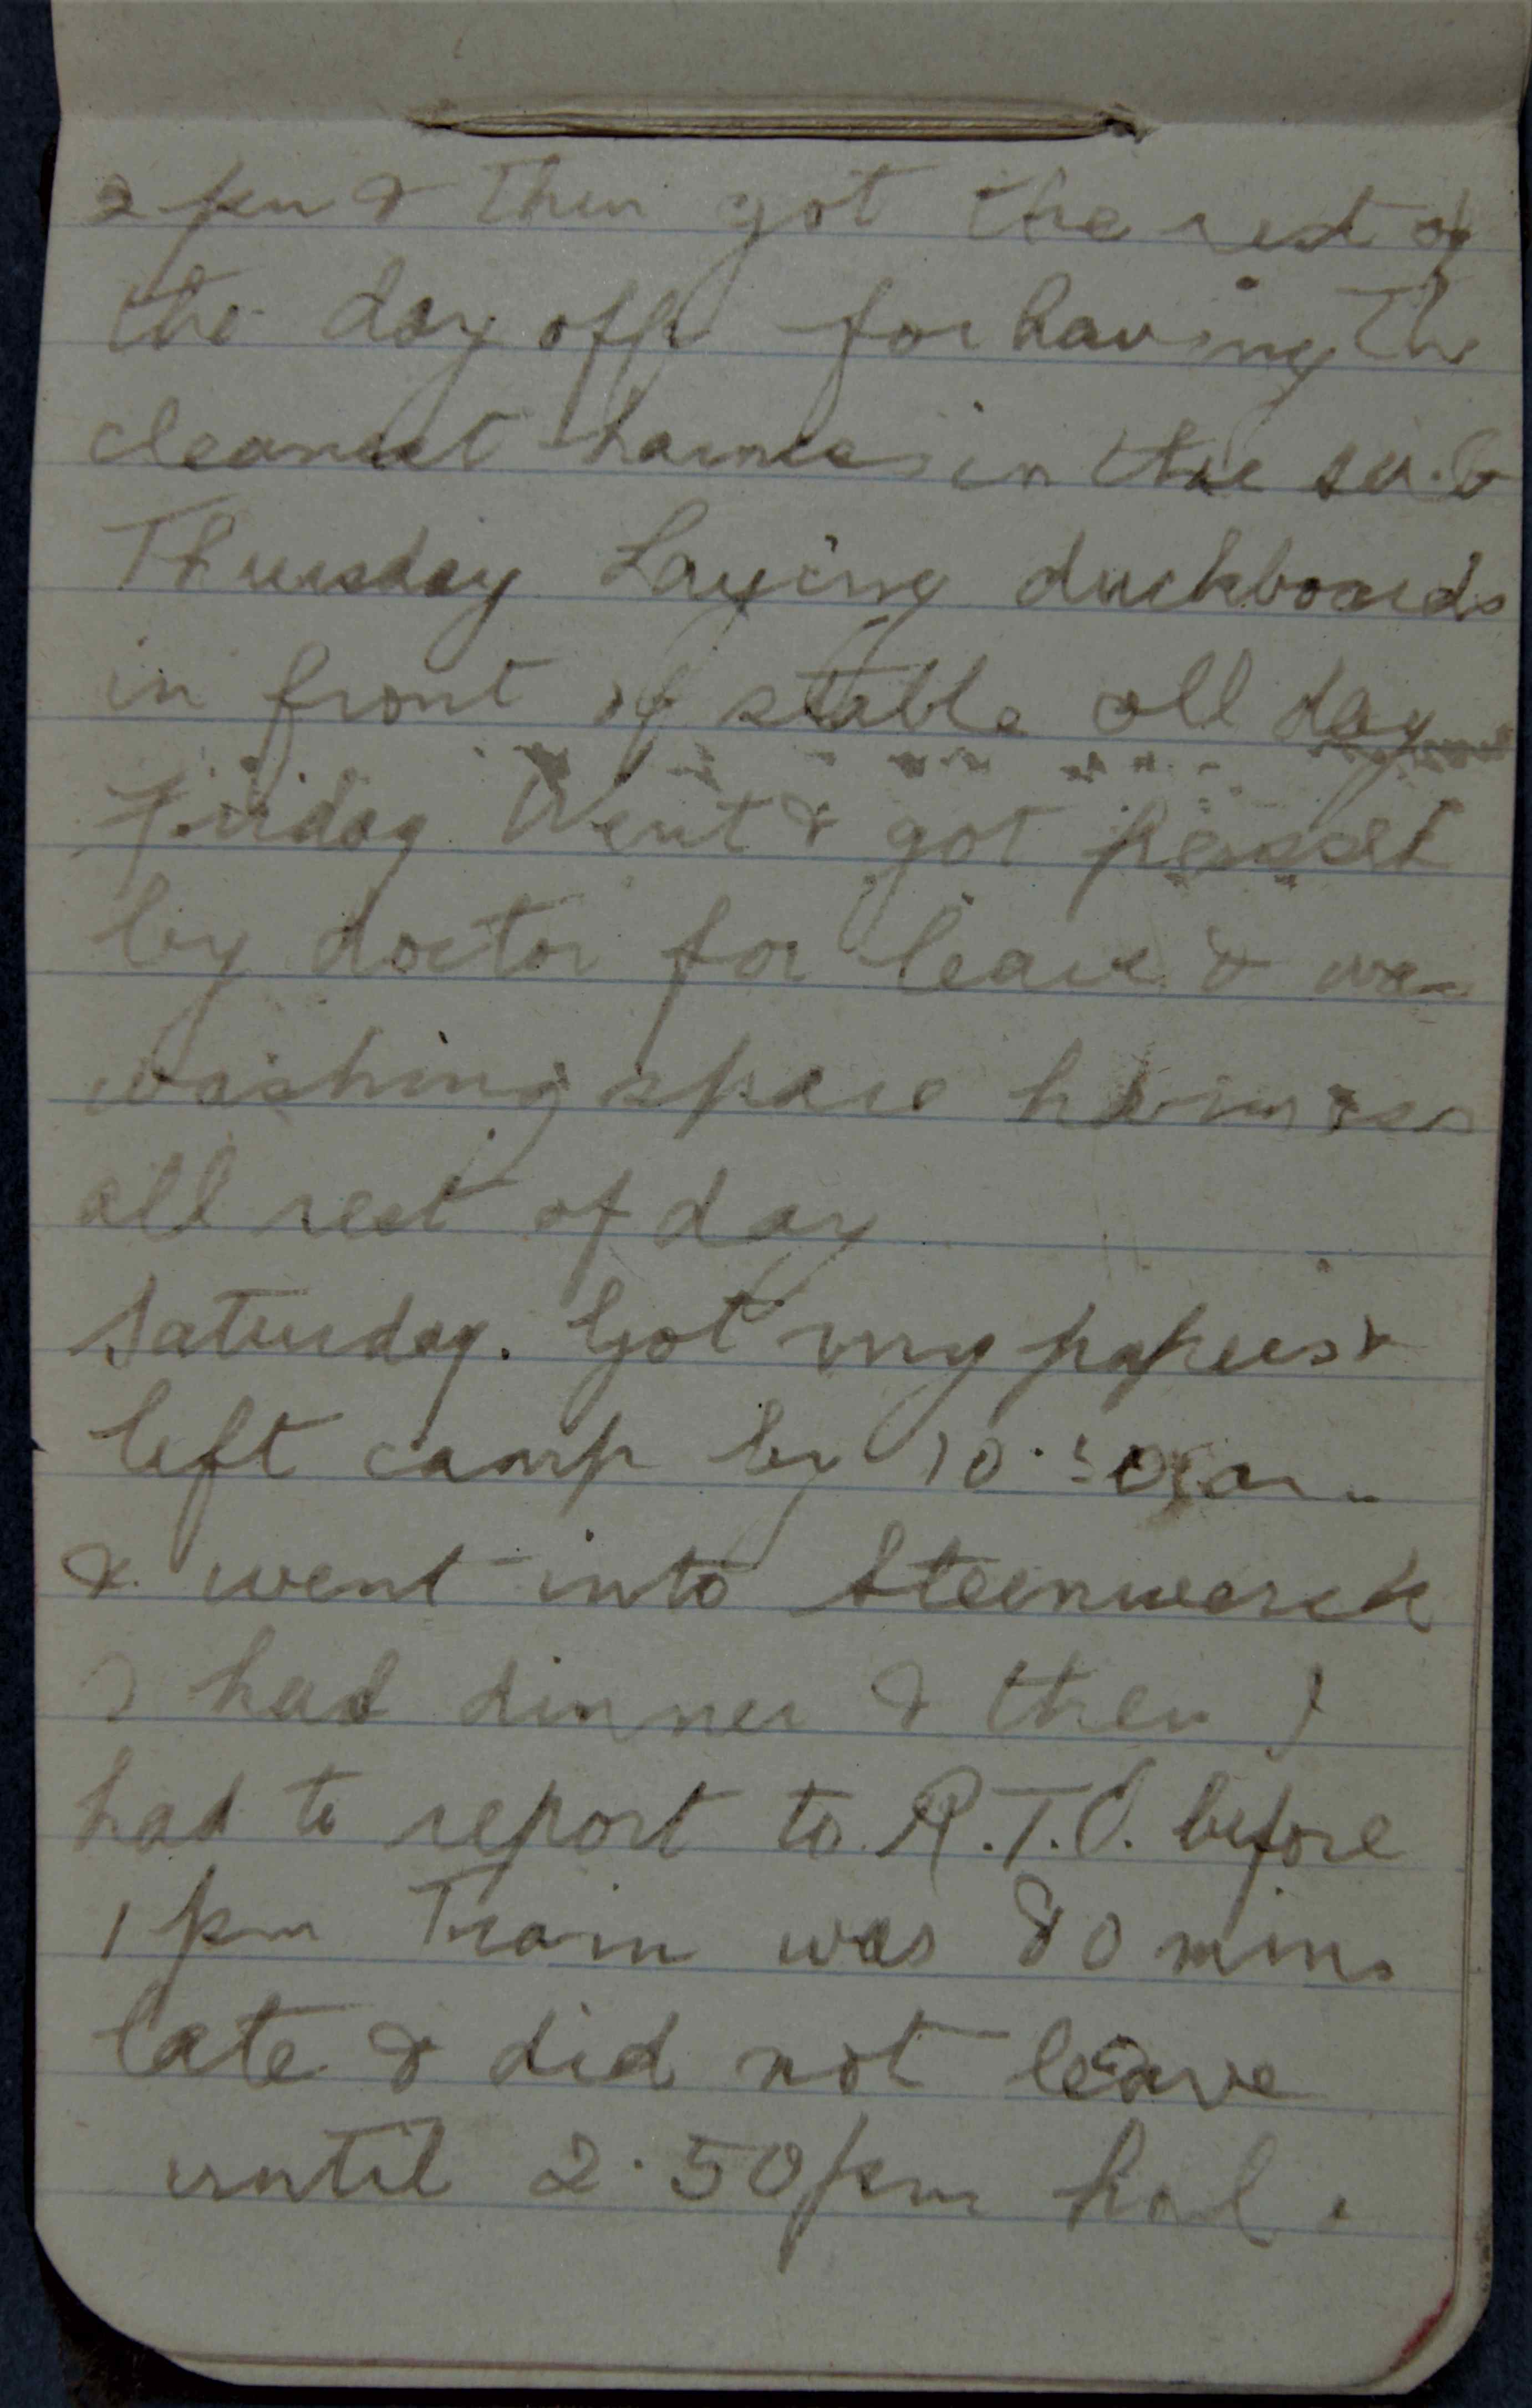 2 pm & then got the rest of
the day off for having the
cleanest harness in the sub
Thursday Laying duckboards
in front of stable all day
Friday Went & got passed
by doctor for leave & was
washing spare harness
all rest of day
Saturday. Got my papers &
left camp by 10.30 am
& went into Steenwerck
I had dinner & then I
had to report to R.T.O. before
1 pm Train was 80 mins
late & did not leave
until 2.50 pm had